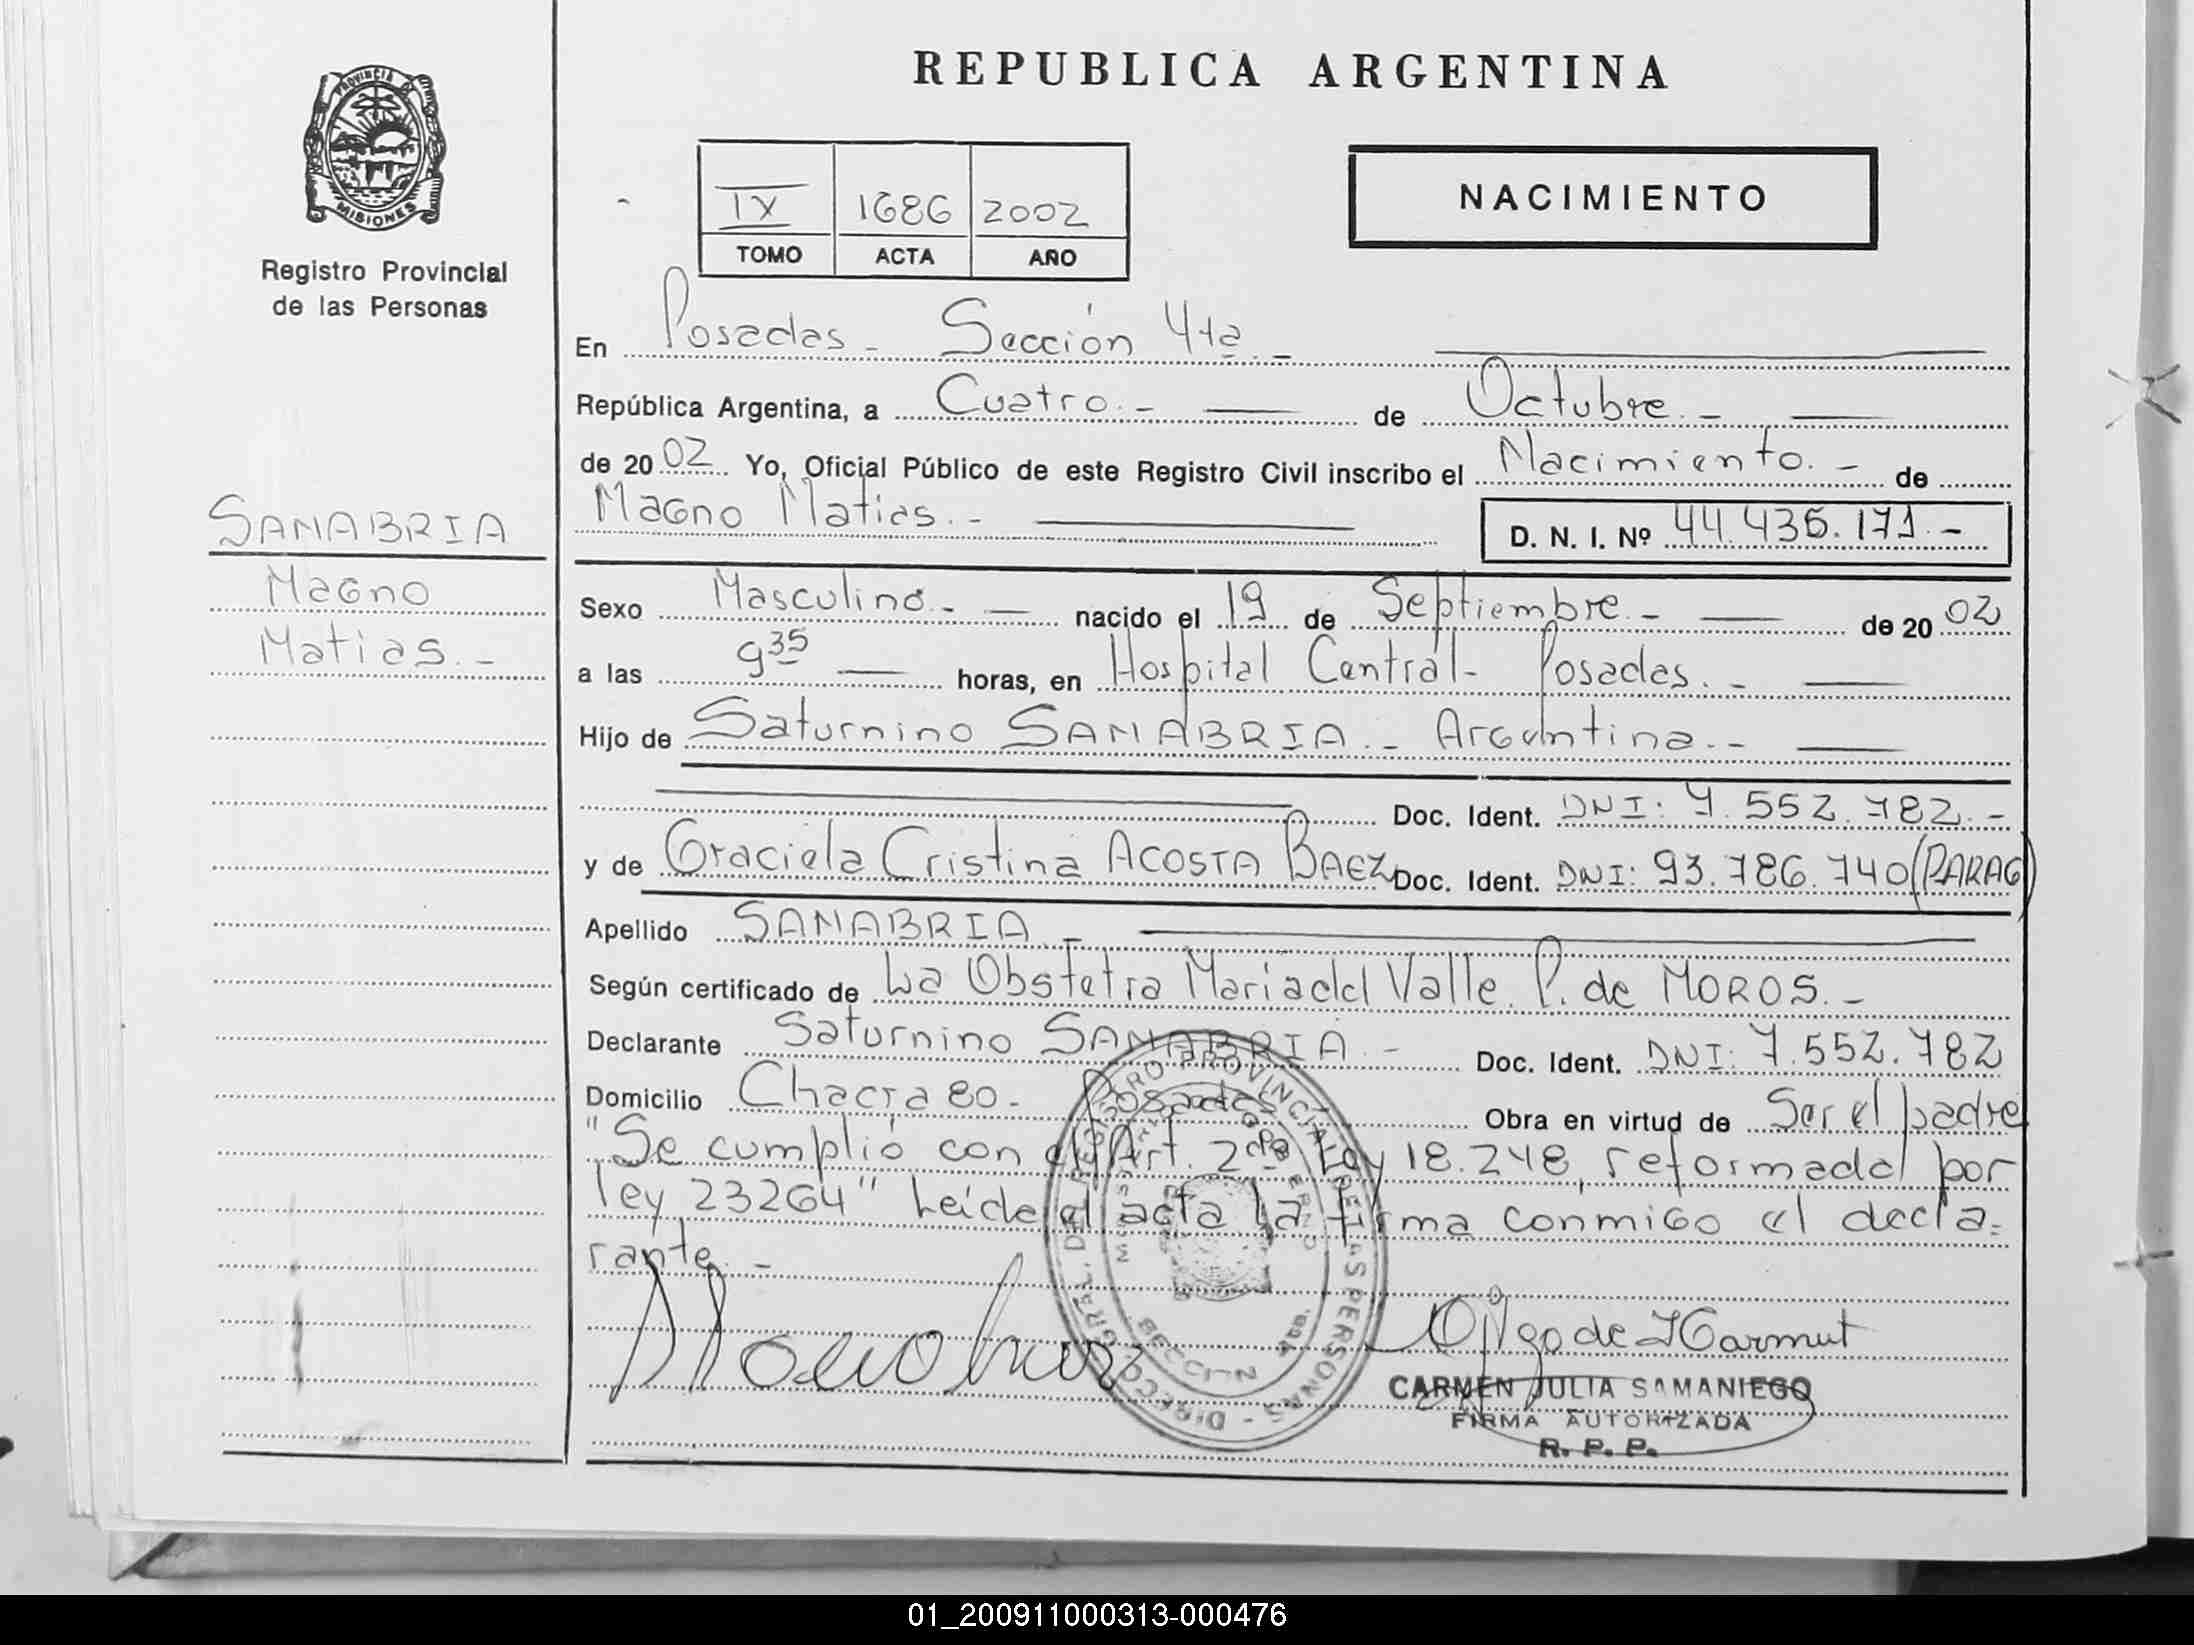 REPUBLICA ARGENTINA
PROVINCIA DE
MISIONES
Registro Provincial
de las Personas
NACIMIENTO
IX 1686 2002
TOMO ACTA AÑO
En Posadas - Sección 4ta. -
República Argentina, a Cuatro. - de Octubre. -
de 2002 Yo, Oficial Público de este Registro Civil inscribo el Nacimiento. - de
Magno Matias. -
D. N. I. Nº 44.436.171 -
SANABRIA
Magno
Matias. -
Sexo Masculino. - nacido el 19 de Septiembre. - de 2002
a las 9 35 horas, en Hospital Central - Posadas. -
Hijo de Saturnino SANABRIA. - Argentina. -
Doc. Ident. DNI: 7.552.782. -
y de Graciela Cristina ACOSTA BAEZ Doc. Ident. DNI: 93.786.740 (PARAG)
Apellido SANABRIA. -
Según certificado de La Obstetra Maria del Valle P. de MOROS. -
Declarante Saturnino SANABRIA. - Doc. Ident. DNI: 7.552.782
Domicilio Chacra 80 - Posadas - Obra en virtud de Ser el padre
"Se cumplió con el Art. 2do Ley 18.248, reformada por
ley 23264" Leída el acta la firma conmigo el decla=
rante. -
DIRECC. GRAL. DE REGISTRO PROVINCIAL DE LAS PERSONAS -
CARMEN JULIA SAMANIEGO
FIRMA AUTORIZADA
R. P. P.
01_200911000313-000476